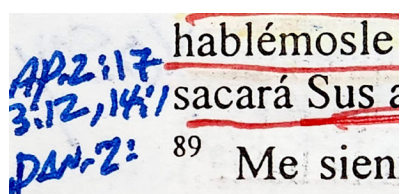 AP.2:17
3:12, 14:1
DAN.2:
hablémosle
sacará Sus a
89 Me sien